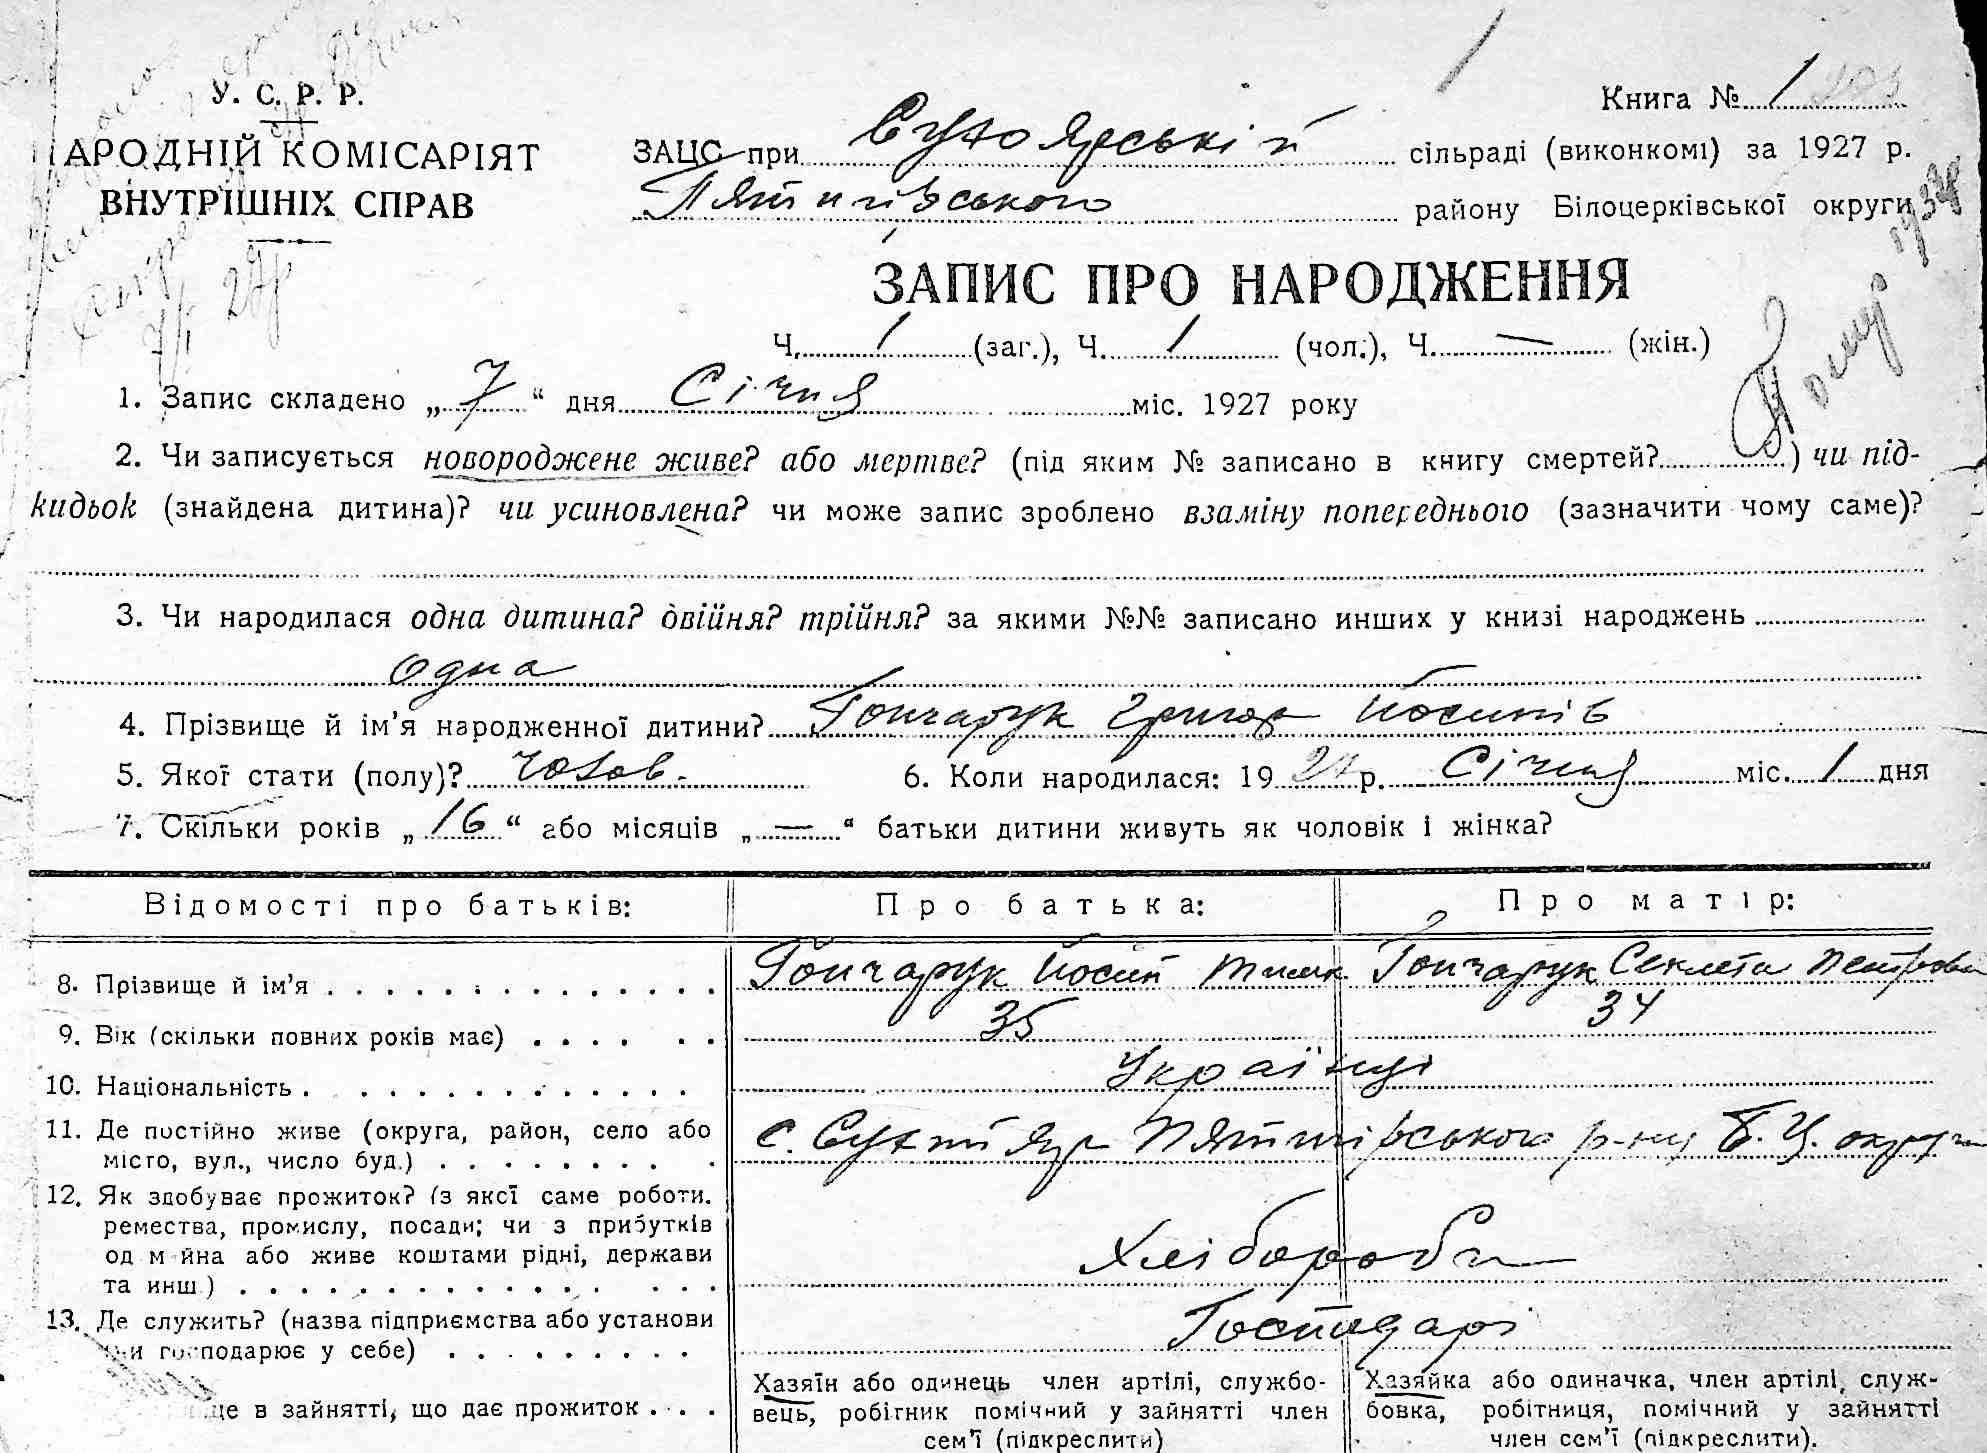 У. С. Р. Р.
Книга № 1 203
АРОДНІЙ КОМІСАРІЯТ
ВНУТРІШНІХ СПРАВ
ЗАЦС при Сухоярській сільраді (виконкомі) за 1927 р.
Пятигірського району Білоцерківської округи
ЗАПИС ПРО НАРОДЖЕННЯ
Ч. 1 (заг.), Ч. 1 (чол.), Ч. — (жін.)
1. Запис складено „ 7 “ дня Січня міс. 1927 року
2. Чи записується новороджене живе? або мертве? (під яким № записано в книгу смертей? ) чи під-
кидьок (знайдена дитина)? чи усиновлена? чи може запис зроблено взаміну попереднього (зазначити чому саме)?
3. Чи народилася одна дитина? двійня? трійня? за якими №№ записано инших у книзі народжень
одна
4. Прізвище й ім’я народженної дитини? Гончарук Григор Йосипів
5. Якої стати (полу)? чолов. 6. Коли народилася: 19 27 р. Січня міс. 1 дня
7. Скільки років „ 16 “ або місяців „ — “ батьки дитини живуть як чоловік і жінка?
Відомості про батьків: Про батька: Про матір:
8. Прізвище й ім’я Гончарук Йосип Тимк. Гончарук Секлета Петрова
9. Вік (скільки повних років має) 35 34
10. Національність Українці
11. Де постійно живе (округа, район, село або
місто, вул., число буд.) с. Сухий Яр Пятигірського р-ну Б. Ц. округи
12. Як здобуває прожиток? (з якєї саме роботи.
ремества, промислу, посади; чи з прибутків
од м йна або живе коштами рідні, держави
та инш.) Хлібороби
13. Де служить? (назва підприємства або установи
чи господарює у себе) Господарі
ще в зайнятті, що дає прожиток
Хазяїн або одинець член артілі, службо-
вець, робітник помічний у зайнятті член
сем’ї (підкреслити)
Хазяйка або одиначка, член артілі, служ-
бовка, робітниця, помічний у зайнятті
член сем’ї (підкреслити).